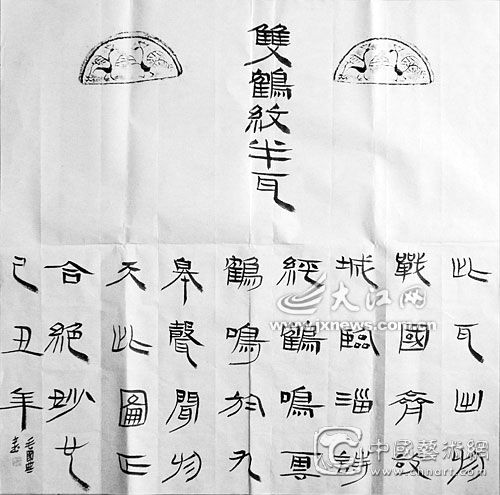 雙鶴紋半瓦
此瓦出於
戰國齊故
城臨淄詩
經鶴鳴云
鶴鳴於九
皋聲聞於
天此圖正
合絕妙也
己丑年
大江网
www.jxnews.com.cn
中國藝術網
www.cnnart.com